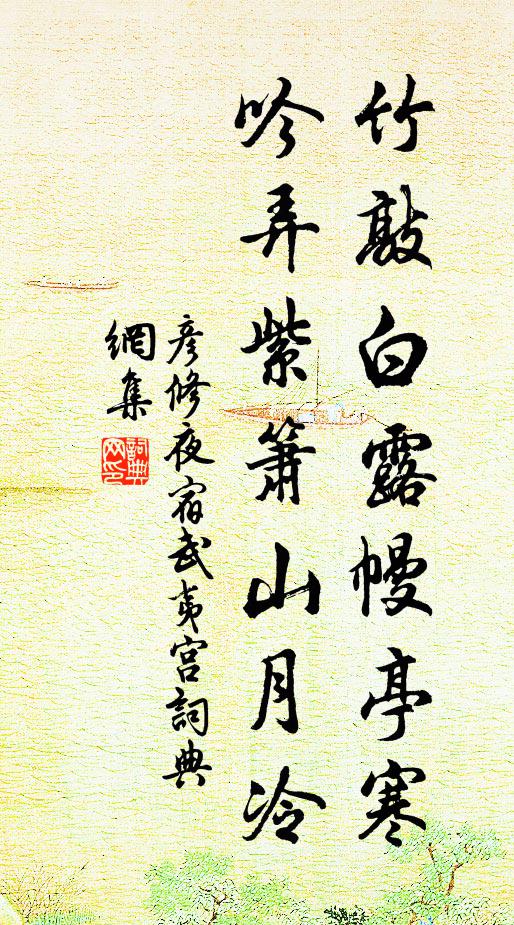 竹敲白露幔亭寒
吟弄紫簫山月冷
彥修夜宿武夷宮詞典
網集
詞典
网印